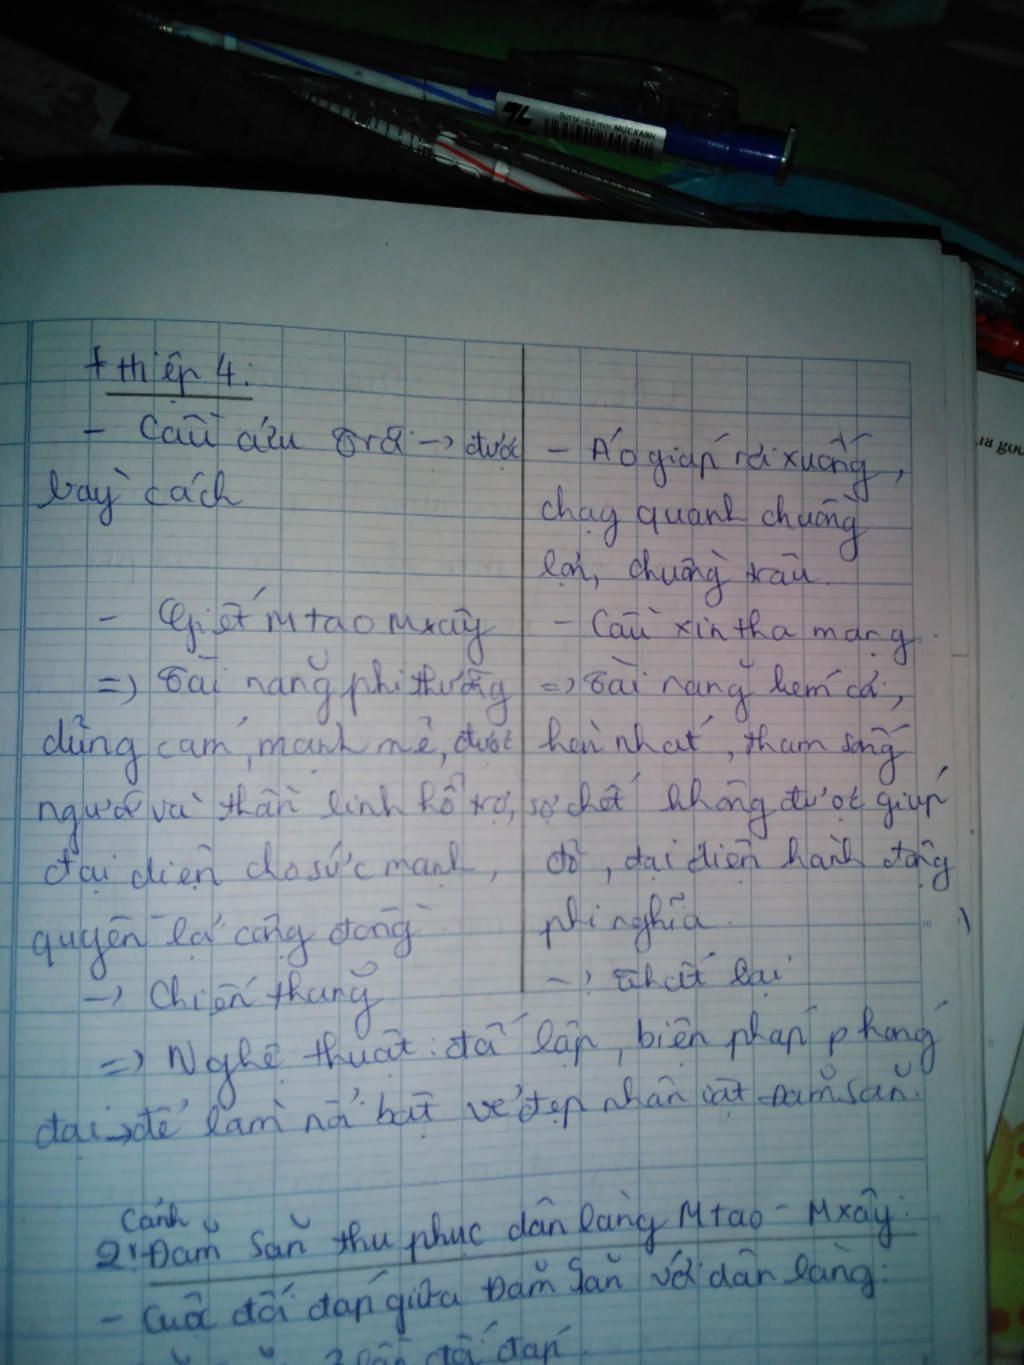 + thiệp 4:
- Cầu cứu Trời → được
bày cách
- Giết Mtao Mxây
=> Tài năng phi thường
dũng cảm, mạnh mẽ, được
người và thần linh hỗ trợ,
đại diện cho sức mạnh,
quyền lợi cộng đồng
→ Chiến thắng
- Áo giáp rơi xuống,
chạy quanh chuồng
lợn, chuồng trâu.
- Cầu xin tha mạng.
=> Tài năng kém cỏi,
hèn nhát, tham sống
sợ chết không được giúp
đỡ, đại diện hành động
phi nghĩa.
→ Thất bại
=> Nghệ thuật: đối lập, biện pháp phóng
đại → để làm nổi bật vẻ đẹp nhân vật Đăm Săn.
Cảnh
2. Đăm Săn thu phục dân làng Mtao - Mxây:
- Cuộc đối đáp giữa Đăm Săn với dân làng:
3 lần đối đáp
MỰC XANH